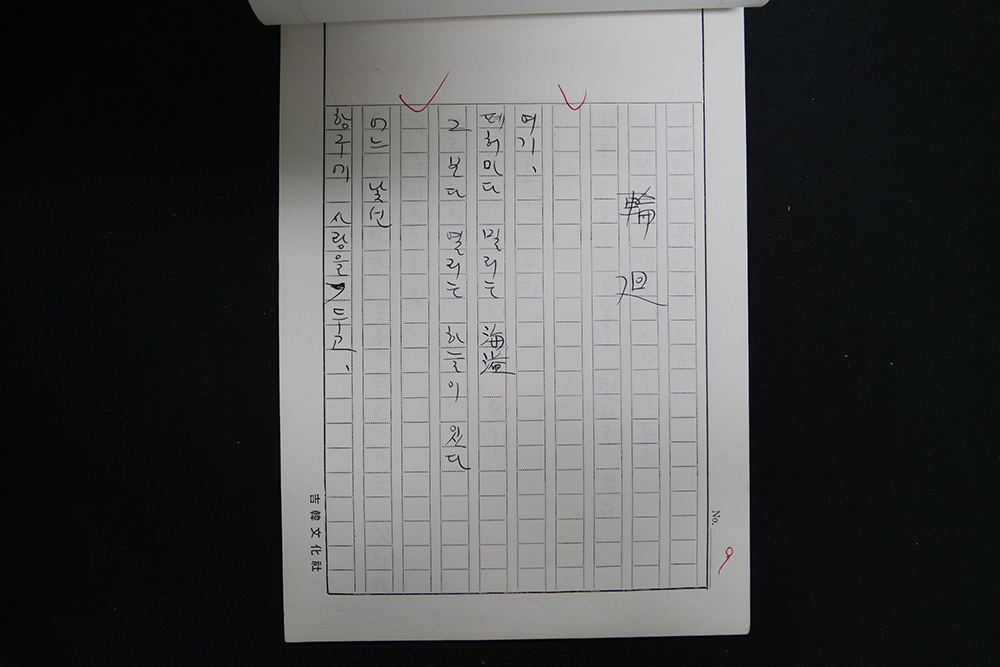 輪 廻
여기、
폐허마다 밀리는 海溢
그 보다 열리는 하늘이 있다
어느 낯선
항구에 사랑을 두고、
No. 9
吉韓文化社